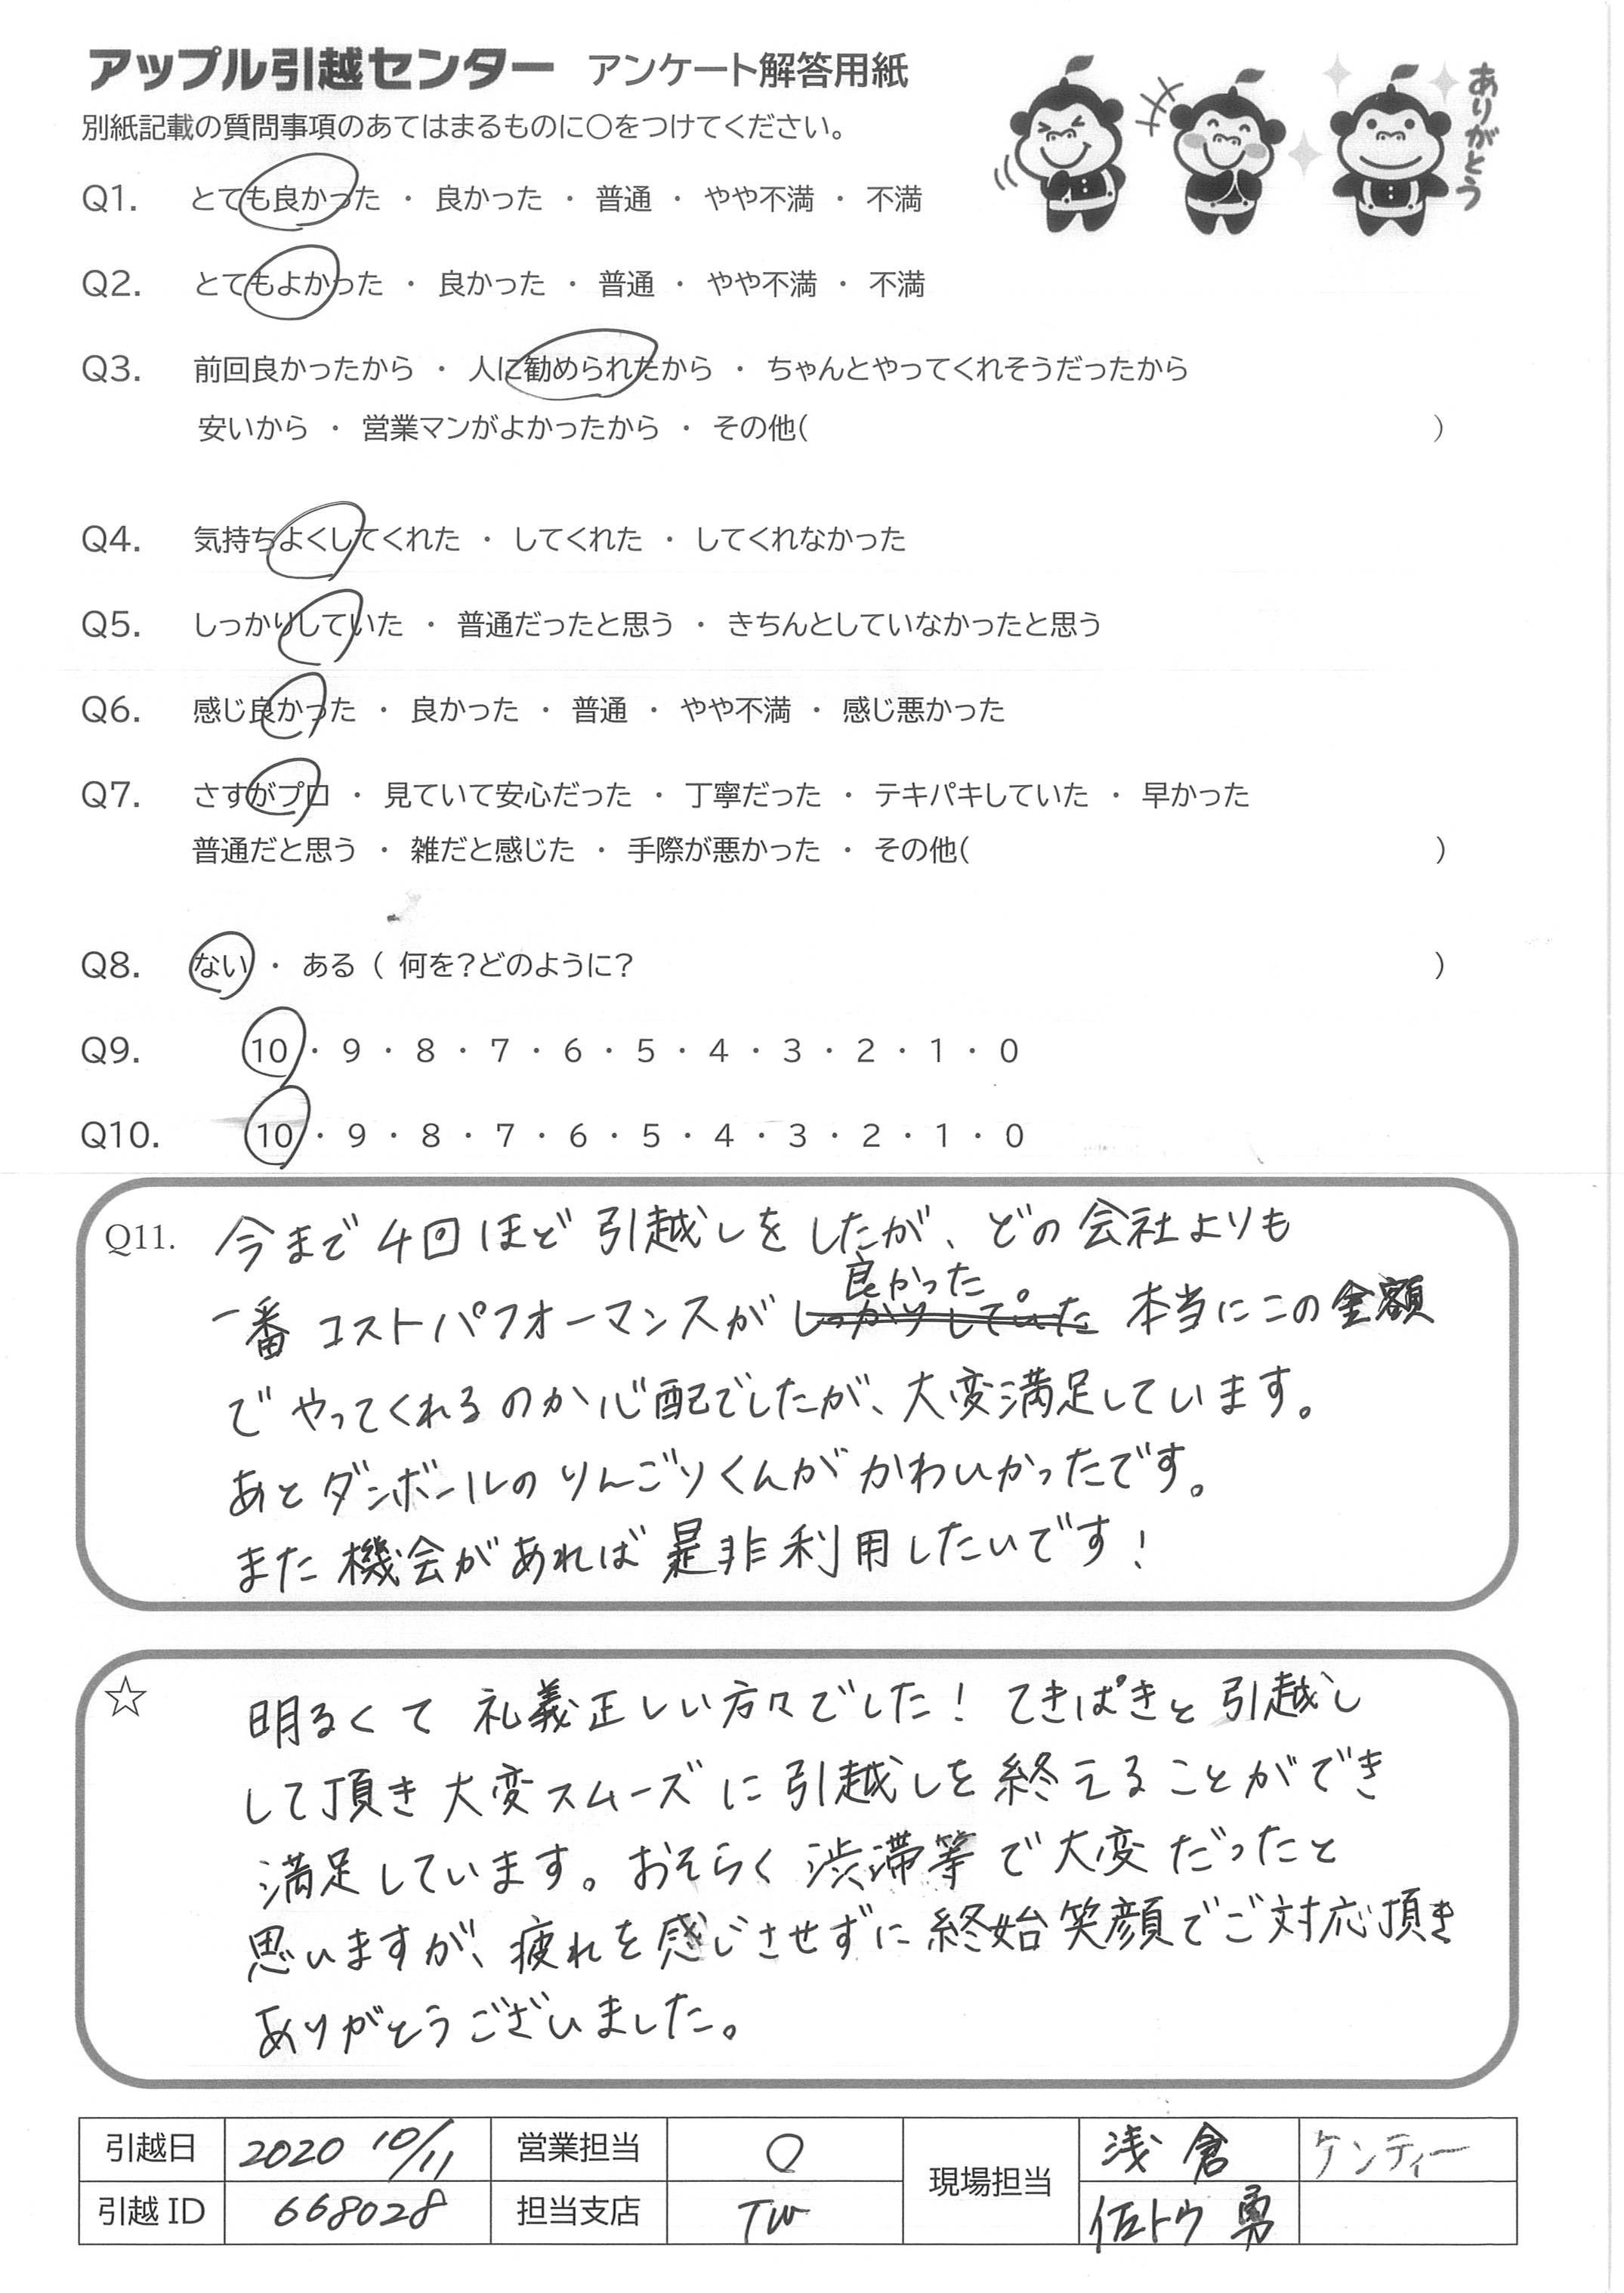 アップル引越センター アンケート解答用紙
ありがとう
別紙記載の質問事項のあてはまるものに○をつけてください。
Q1. とても良かった ・ 良かった ・ 普通 ・ やや不満 ・ 不満
Q2. とてもよかった ・ 良かった ・ 普通 ・ やや不満 ・ 不満
Q3. 前回良かったから ・ 人に勧められたから ・ ちゃんとやってくれそうだったから
安いから ・ 営業マンがよかったから ・ その他( )
Q4. 気持ちよくしてくれた ・ してくれた ・ してくれなかった
Q5. しっかりしていた ・ 普通だったと思う ・ きちんとしていなかったと思う
Q6. 感じ良かった ・ 良かった ・ 普通 ・ やや不満 ・ 感じ悪かった
Q7. さすがプロ ・ 見ていて安心だった ・ 丁寧だった ・ テキパキしていた ・ 早かった
普通だと思う ・ 雑だと感じた ・ 手際が悪かった ・ その他( )
Q8. ない ・ ある ( 何を?どのように? )
Q9. 10 ・ 9 ・ 8 ・ 7 ・ 6 ・ 5 ・ 4 ・ 3 ・ 2 ・ 1 ・ 0
Q10. 10 ・ 9 ・ 8 ・ 7 ・ 6 ・ 5 ・ 4 ・ 3 ・ 2 ・ 1 ・ 0
Q11. 今まで4回ほど引越しをしたが、どの会社よりも
良かった。
一番コストパフォーマンスがしっかりしていた 本当にこの金額
でやってくれるのか心配でしたが、大変満足しています。
あとダンボールのりんごりくんがかわいかったです。
また機会があれば是非利用したいです!
☆ 明るくて礼義正しい方々でした! てきぱきと引越し
して頂き大変スムーズに引越しを終えることができ
満足しています。おそらく渋滞等で大変だったと
思いますが、疲れを感じさせずに終始笑顔でご対応頂き
ありがとうございました。
引越日 2020 10/11 営業担当 Q 現場担当 浅倉 ケンティー
引越ID 668028 担当支店 TW 佐トウ勇